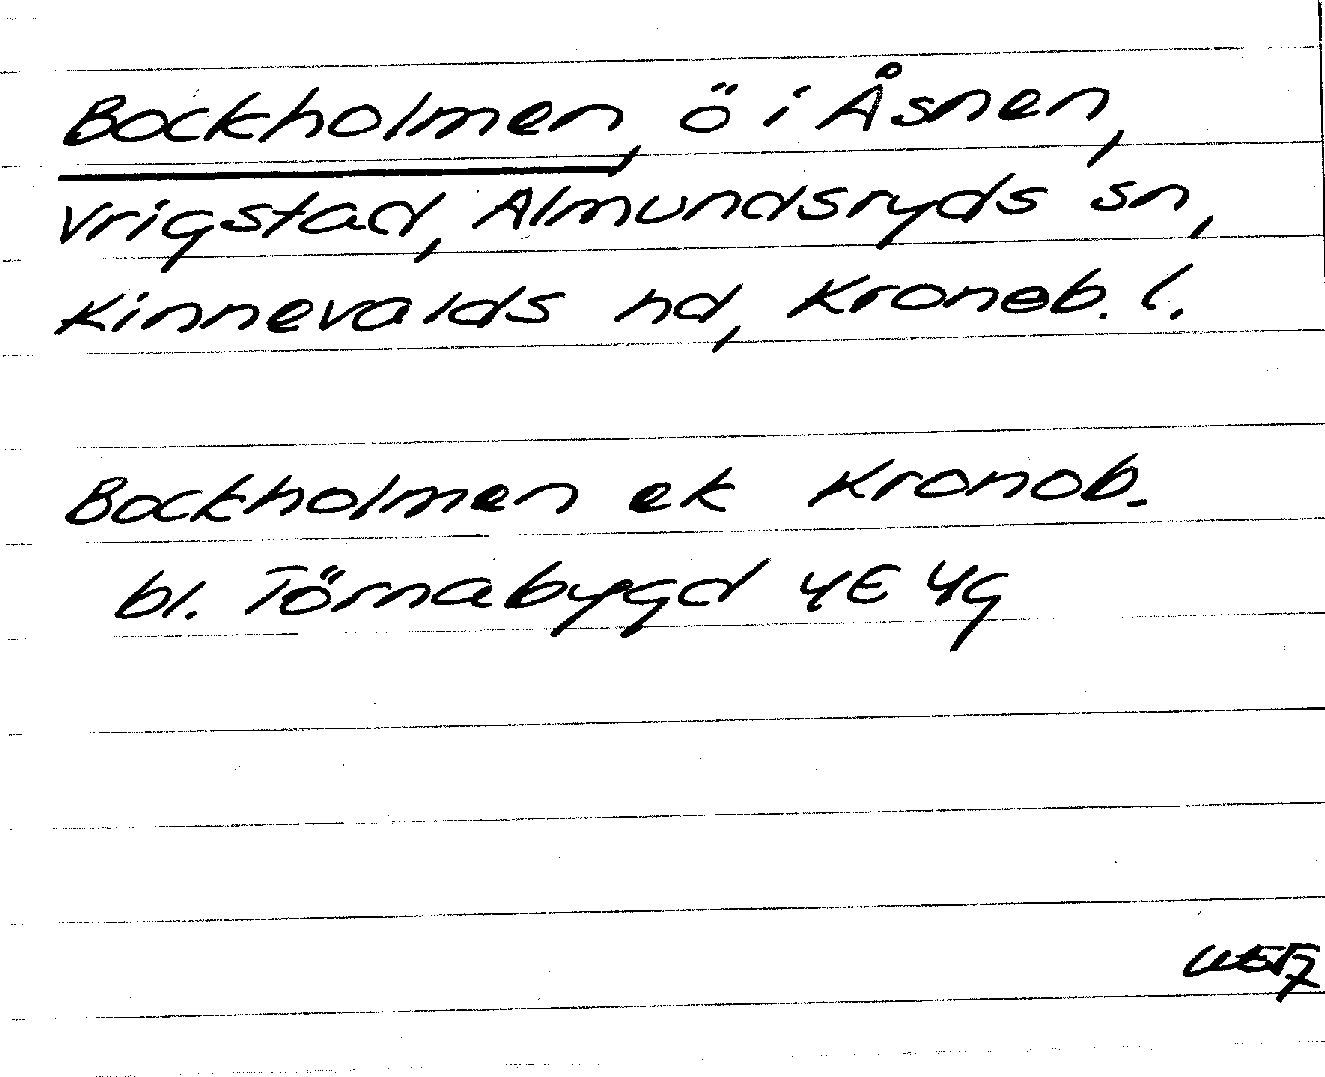 Bockholmen, ö i Åsnen,
Vrigstad, Almundsryds sn,
Kinnevalds hd, Kronob. l.
Bockholmen ek Kronob.
bl. Törnabygd 4E 4g